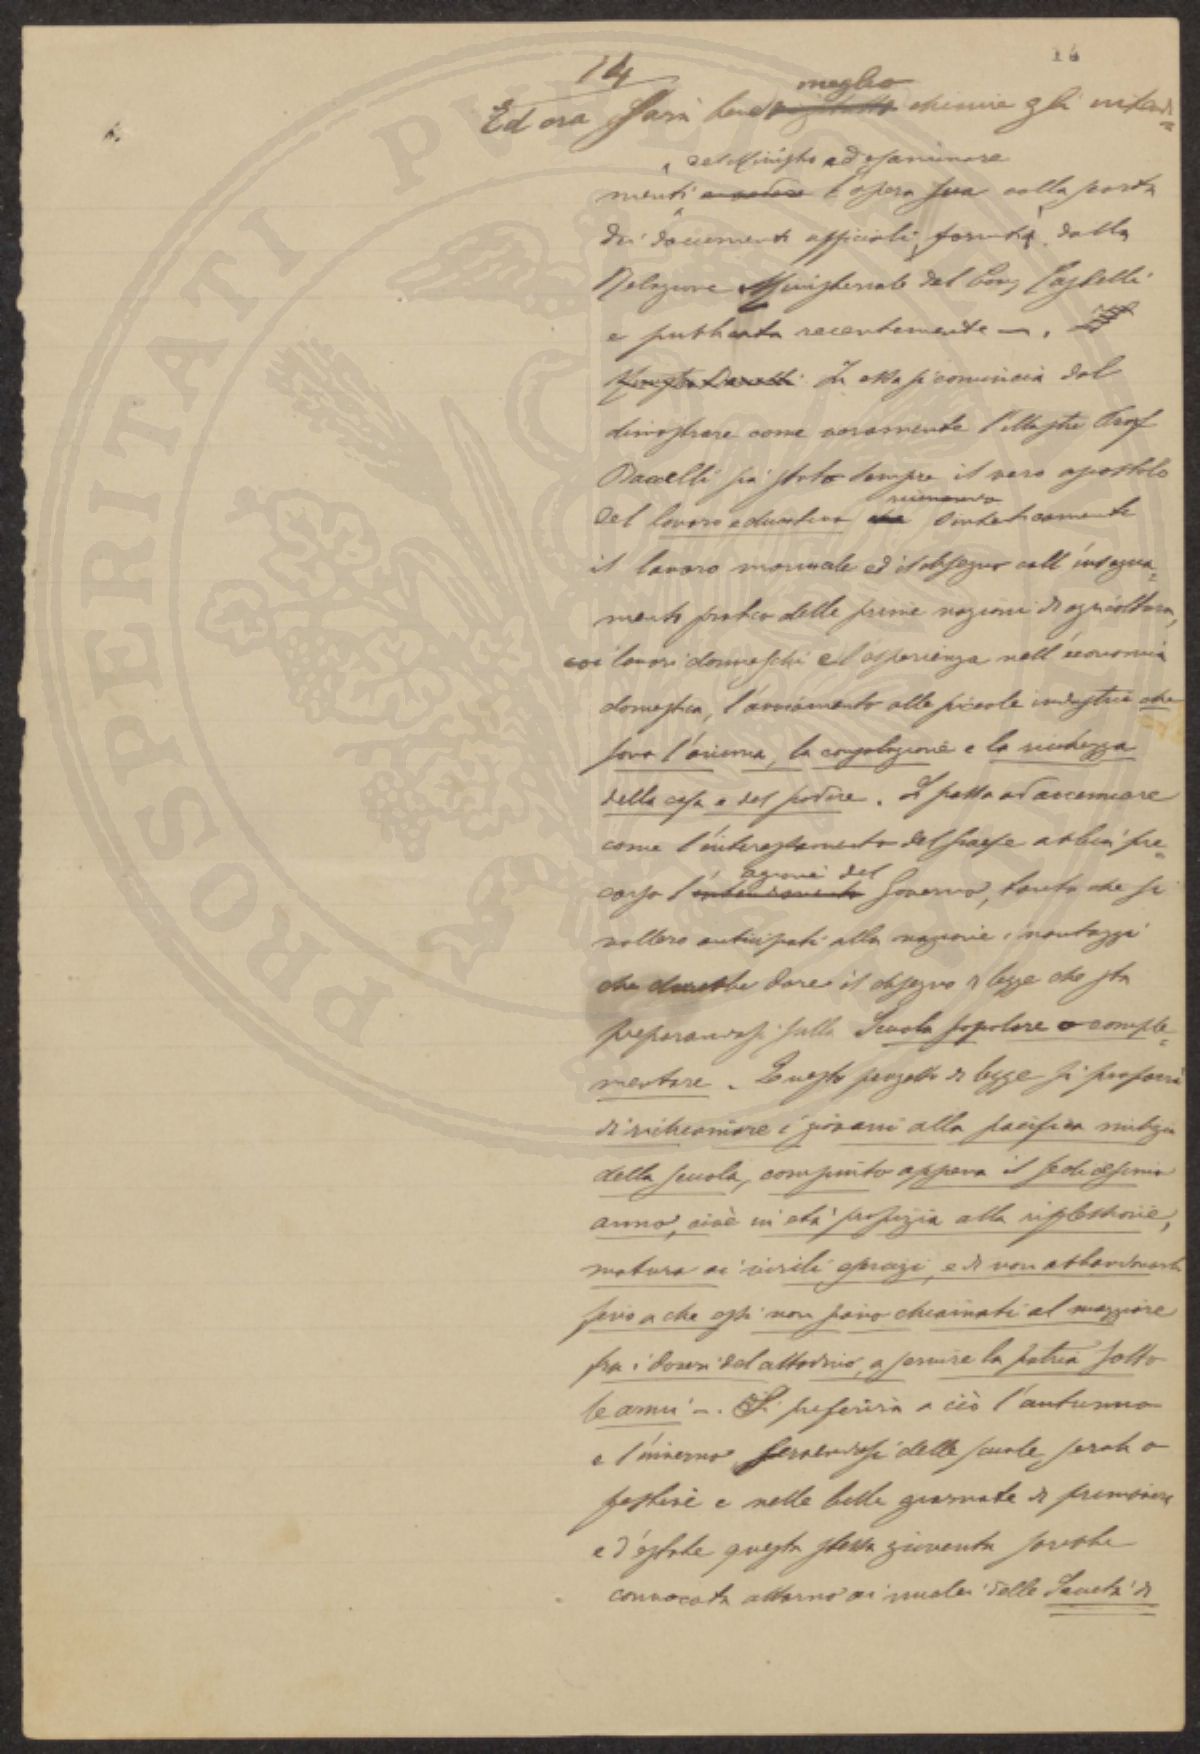 14
14
meglio
Ed ora sarà bene chiarire gli intendi=
del Ministro ad esaminare
menti e vedere l'opera sua colla scorta
dei documenti ufficiali, fornita dalla
Relazione Ministeriale del Comm Castelli
e pubblicata recentemente —.
In essa si comincia dal
dimostrare come veramente l'illustre Prof
Baccelli sia stato sempre il vero apostolo
riunendo
del lavoro educativo che sinteticamente
il lavoro manuale ed il disegno coll'insegna=
mento pratico delle prime nozioni di agricoltura,
coi lavori donneschi e l'esperienza nell'economia
domestica, l'avviamento alle piccole industrie che
sono l'anima, la consolazione e la ricchezza
della casa e del podere. E passa ad accennare
come l'interessamento del paese abbia pre=
azione del
corso l'intendimento Governo, tanto che si
vollero anticipati alla nazione i vantaggi
che dovrebbe dare il disegno di legge che sta
preparandosi sulla Scuola popolare o comple=
mentare. Questo progetto di legge si propone
di richiamare i giovani alla pacifica milizia
della scuola, compiuto appena il sedicesimo
anno, cioè in età propizia alla riflessione,
matura ai virili esercizi, e di non abbandonarli
fino a che essi non siano chiamati al maggiore
fra i doveri del cittadino, a servire la patria sotto
le armi —. Si preferirà a ciò l'autunno
e l'inverno servendosi delle scuole serali o
festive e nelle belle giornate di primavera
e d'estate questa stessa gioventù sarebbe
convocata attorno ai nuclei delle Società di
PROSPERITATI PUBLICAE